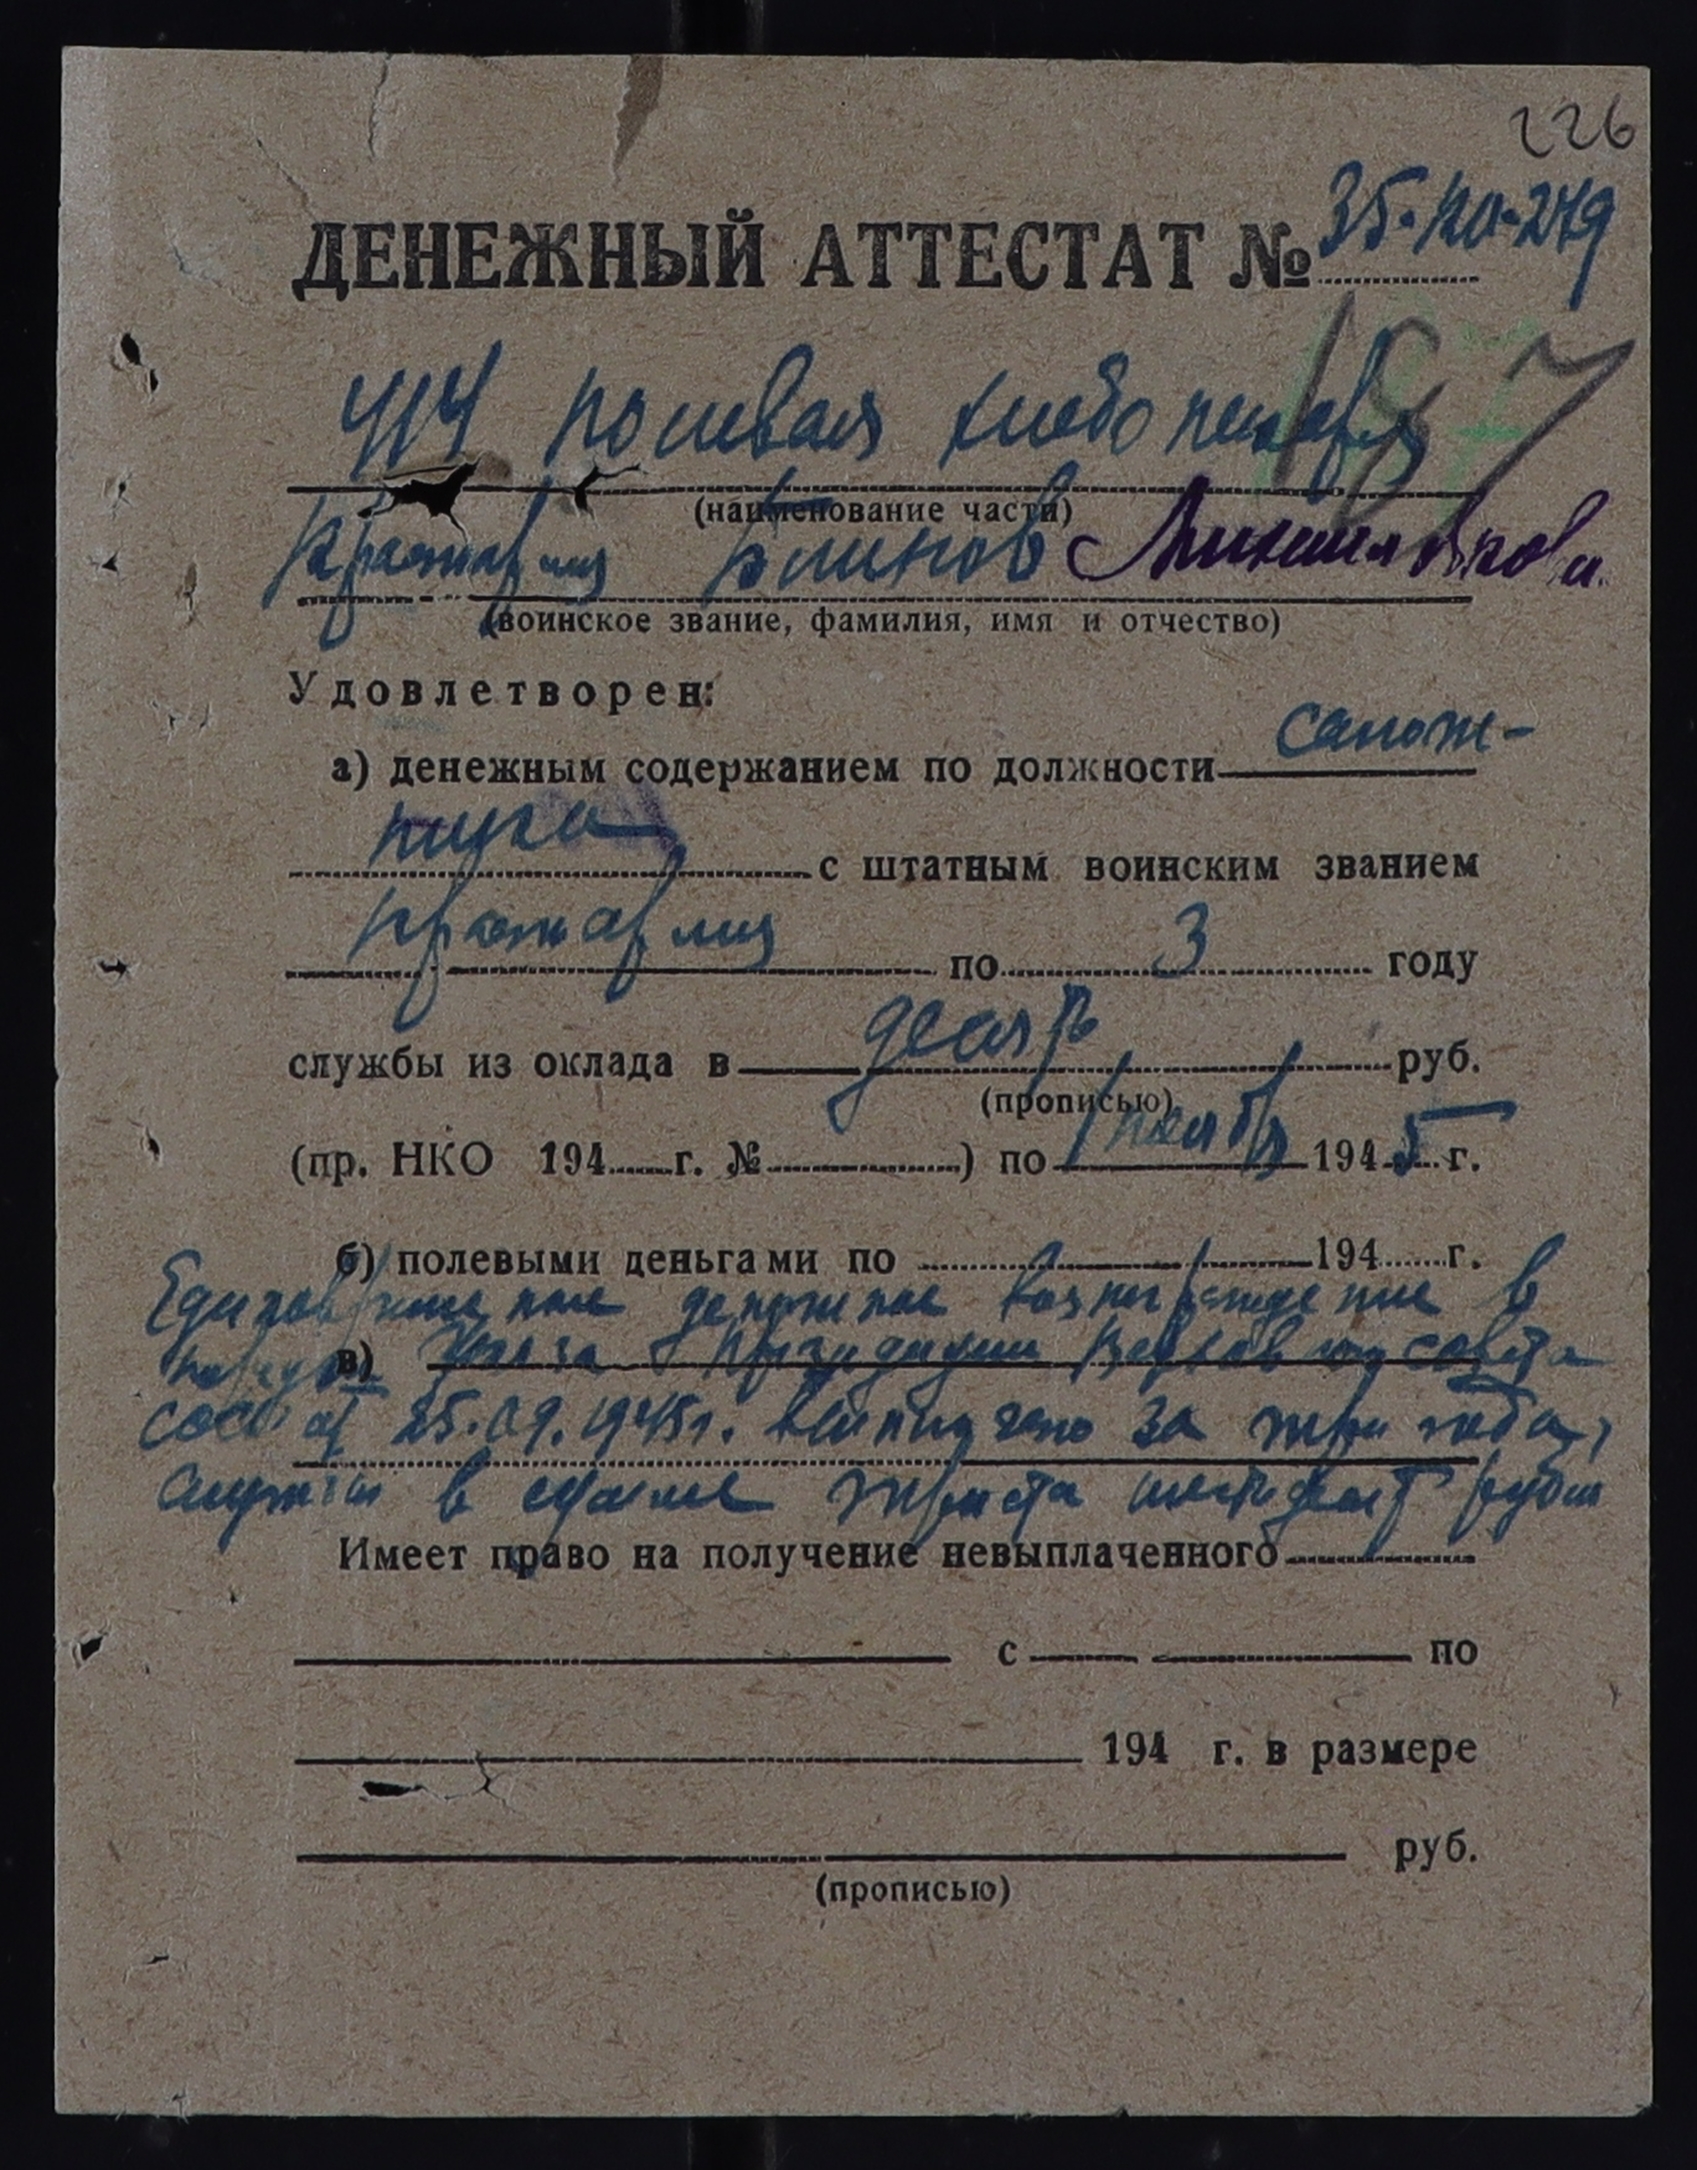 226
ДЕНЕЖНЫЙ АТТЕСТАТ №
414 полевая хлебопекарня
187
(наименование части)
Блинов
(воинское звание, фамилия, имя и отчество)
Удовлетворен:
а) денежным содержанием по должности сапож-
ника с штатным воинским званием
по 3 году
службы из оклада в десять руб.
(прописью)
(пр. НКО 194 г. № ) по 1 ноябр 1945 г.
б) полевыми деньгами по 194 г.
Единовременное денежное вознаграждение в
в) Указа Президиума Верховного совета
СССР от 25.09.1945г. выплачено за три года
службы в сумме триста шестьдесят рублей
Имеет право на получение невыплаченного
с по
194 г. в размере
руб.
(прописью)